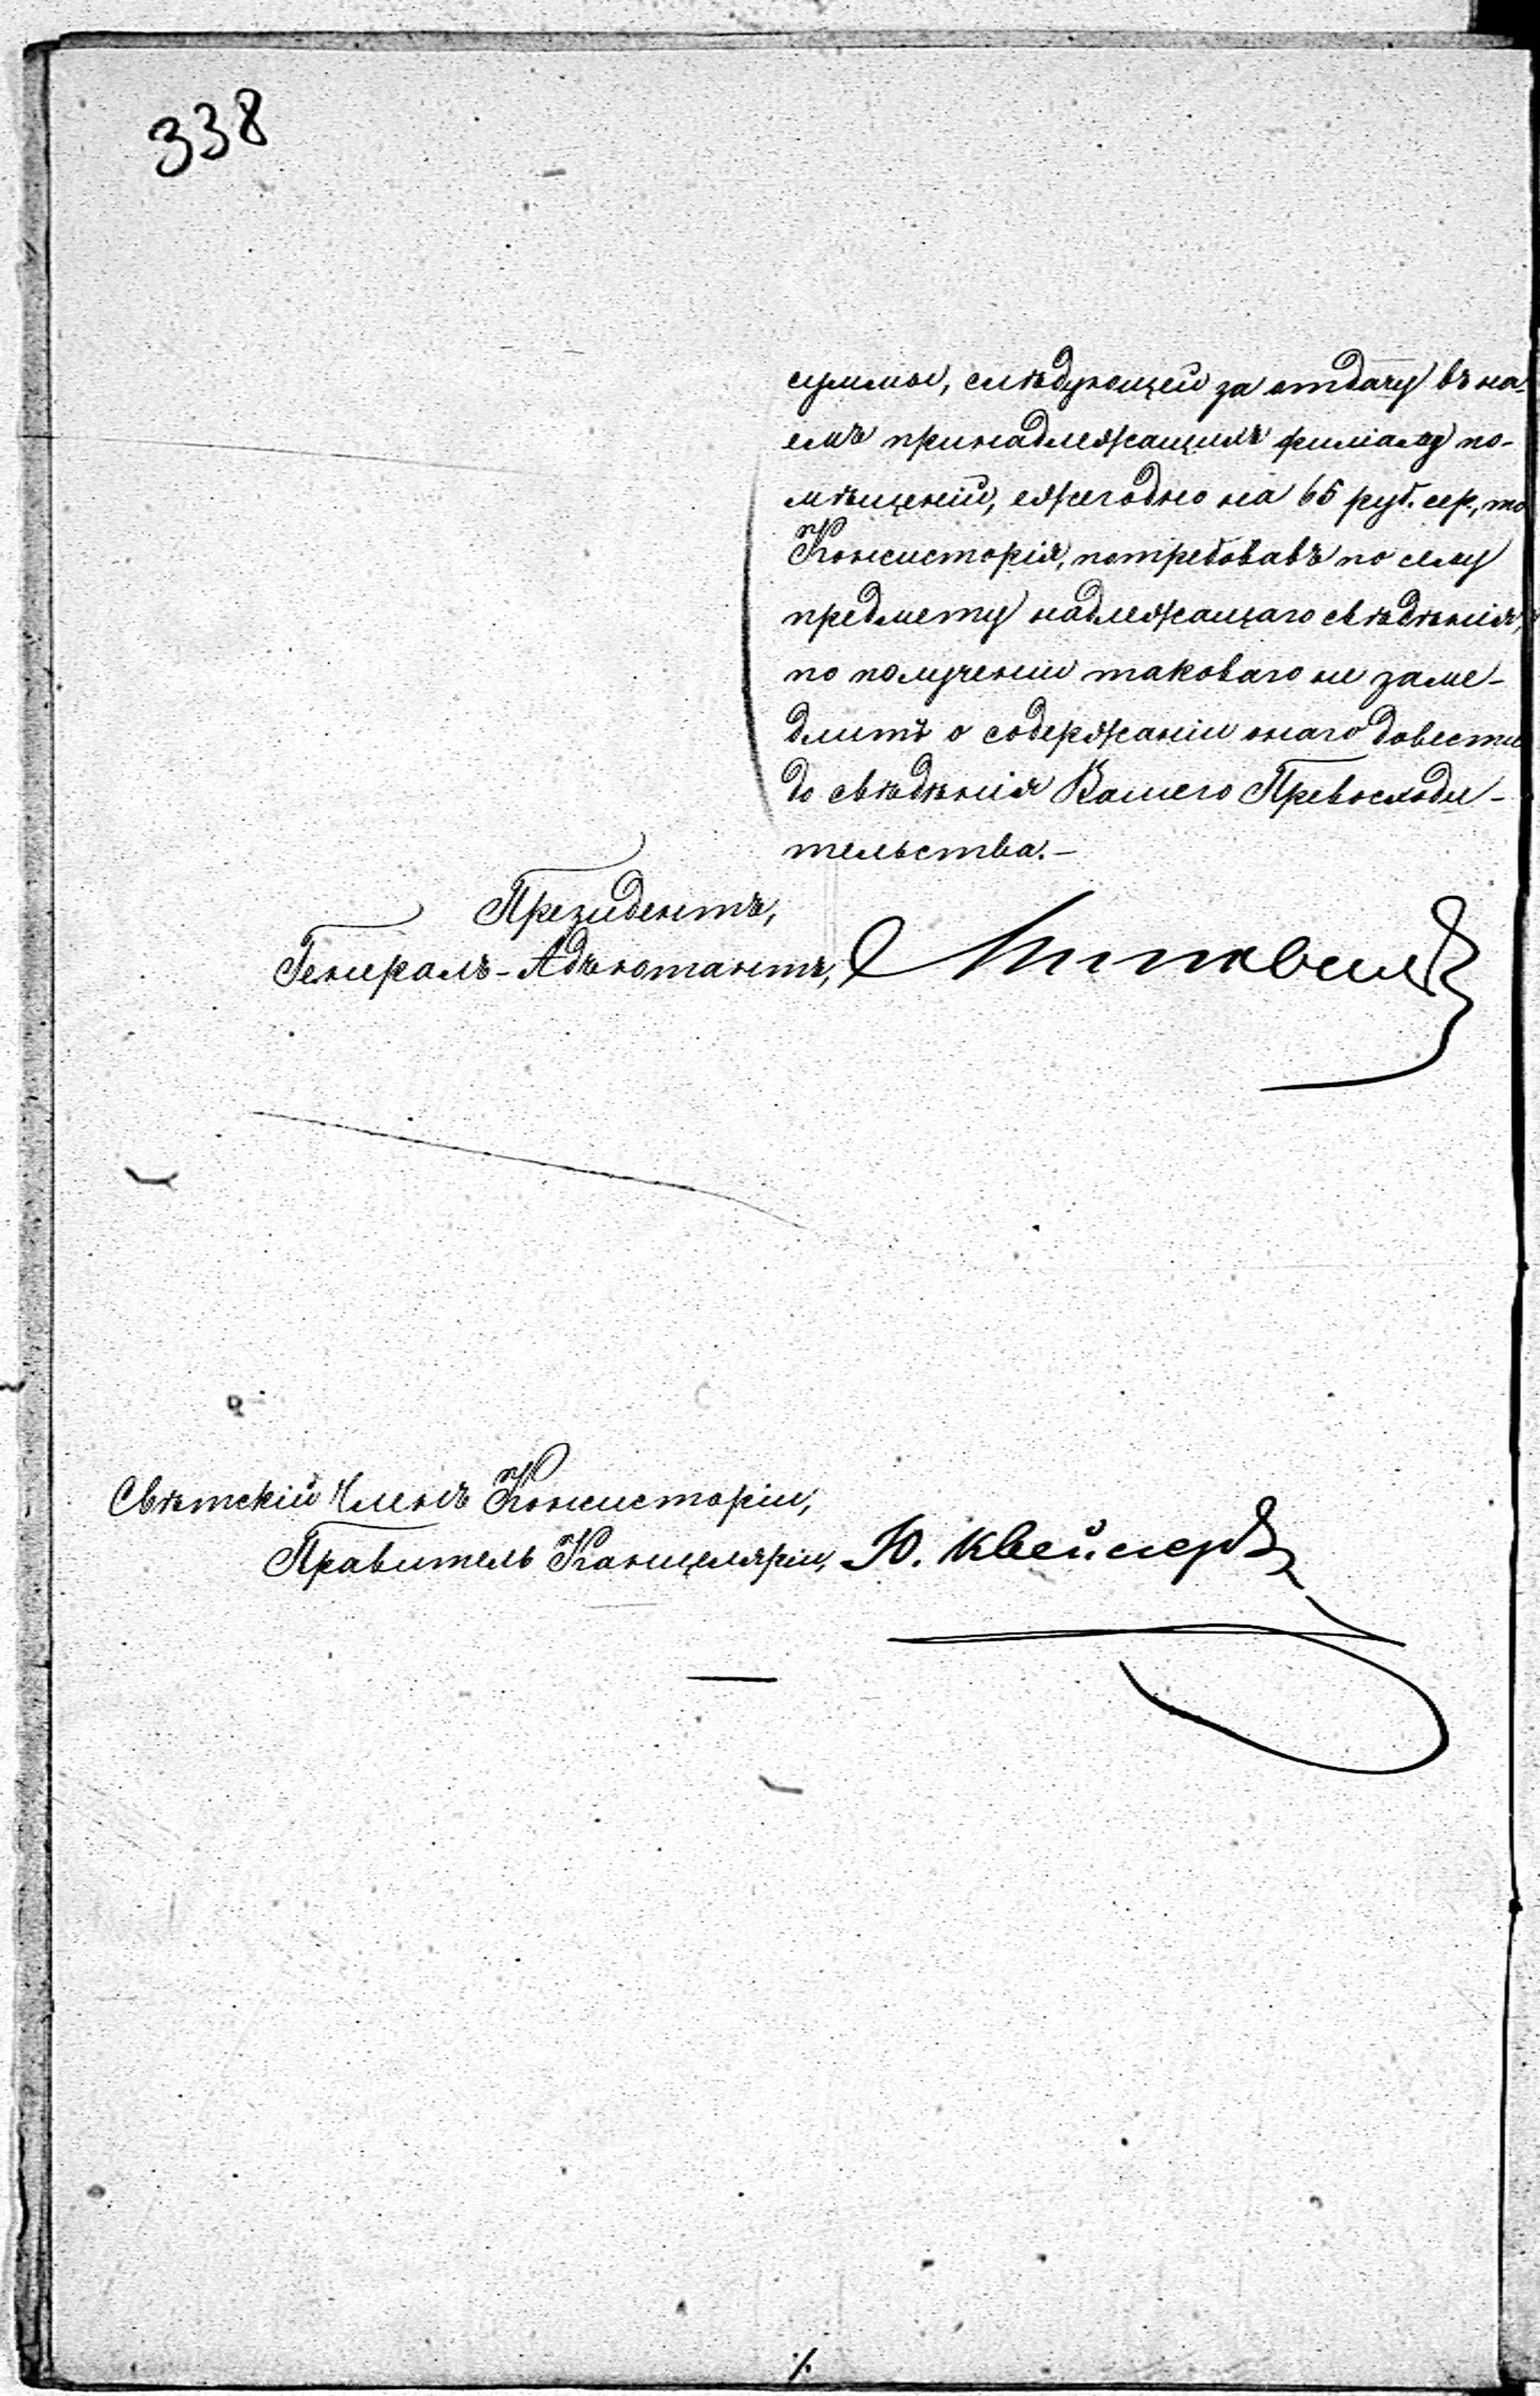 338
суммы, слѣдующей за отдачу въ на-
емъ принадлежащихъ филіалу по-
мѣщеній, ежегодно на 65 руб. сер., то
Консисторія, потребовавъ по сему
предмету надлежащаго свѣдѣнія,
по полученіи таковаго не заме-
длитъ о содержаніи онаго довести
до свѣдѣнія Вашего Превосходи-
тельства.-
Президентъ,
Генералъ-Адъютантъ,
Свѣтскій Членъ Консисторіи,
Правитель Канцеляріи, Ю.